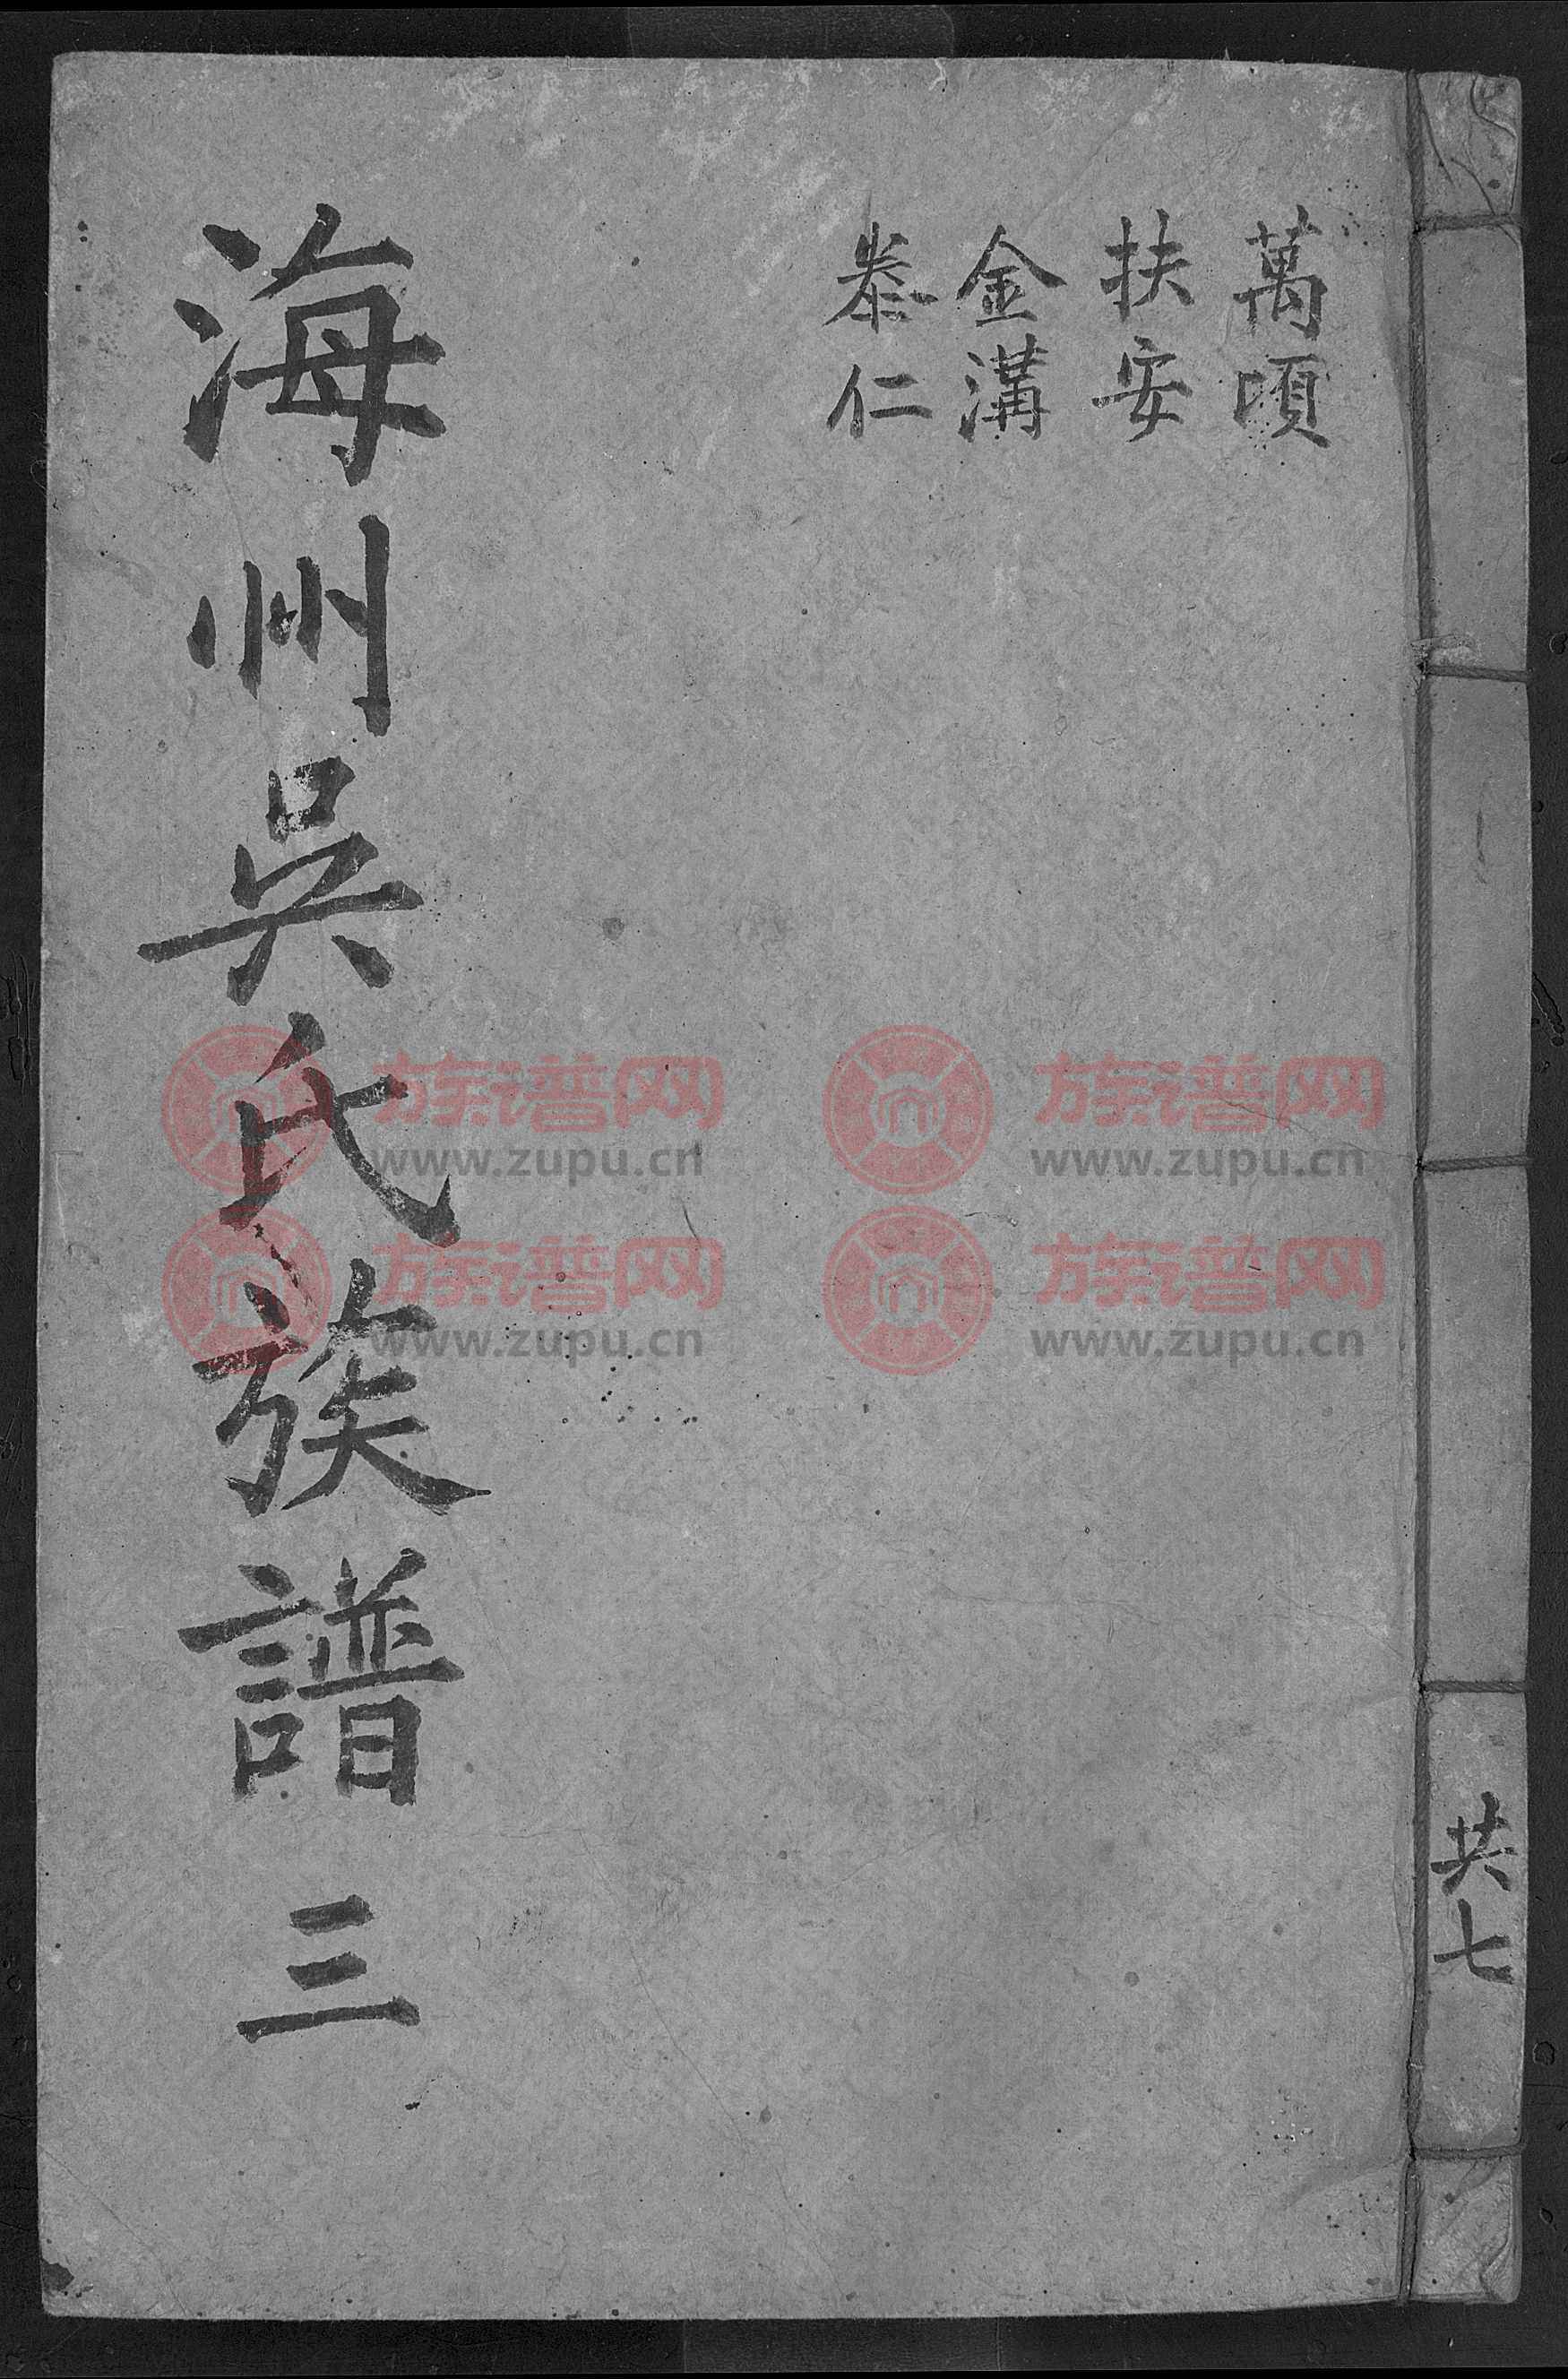 萬頃
扶安
金溝
泰仁
海州吳氏族譜 三
共七
族谱网
www.zupu.cn
族谱网
www.zupu.cn
族谱网
www.zupu.cn
族谱网
www.zupu.cn